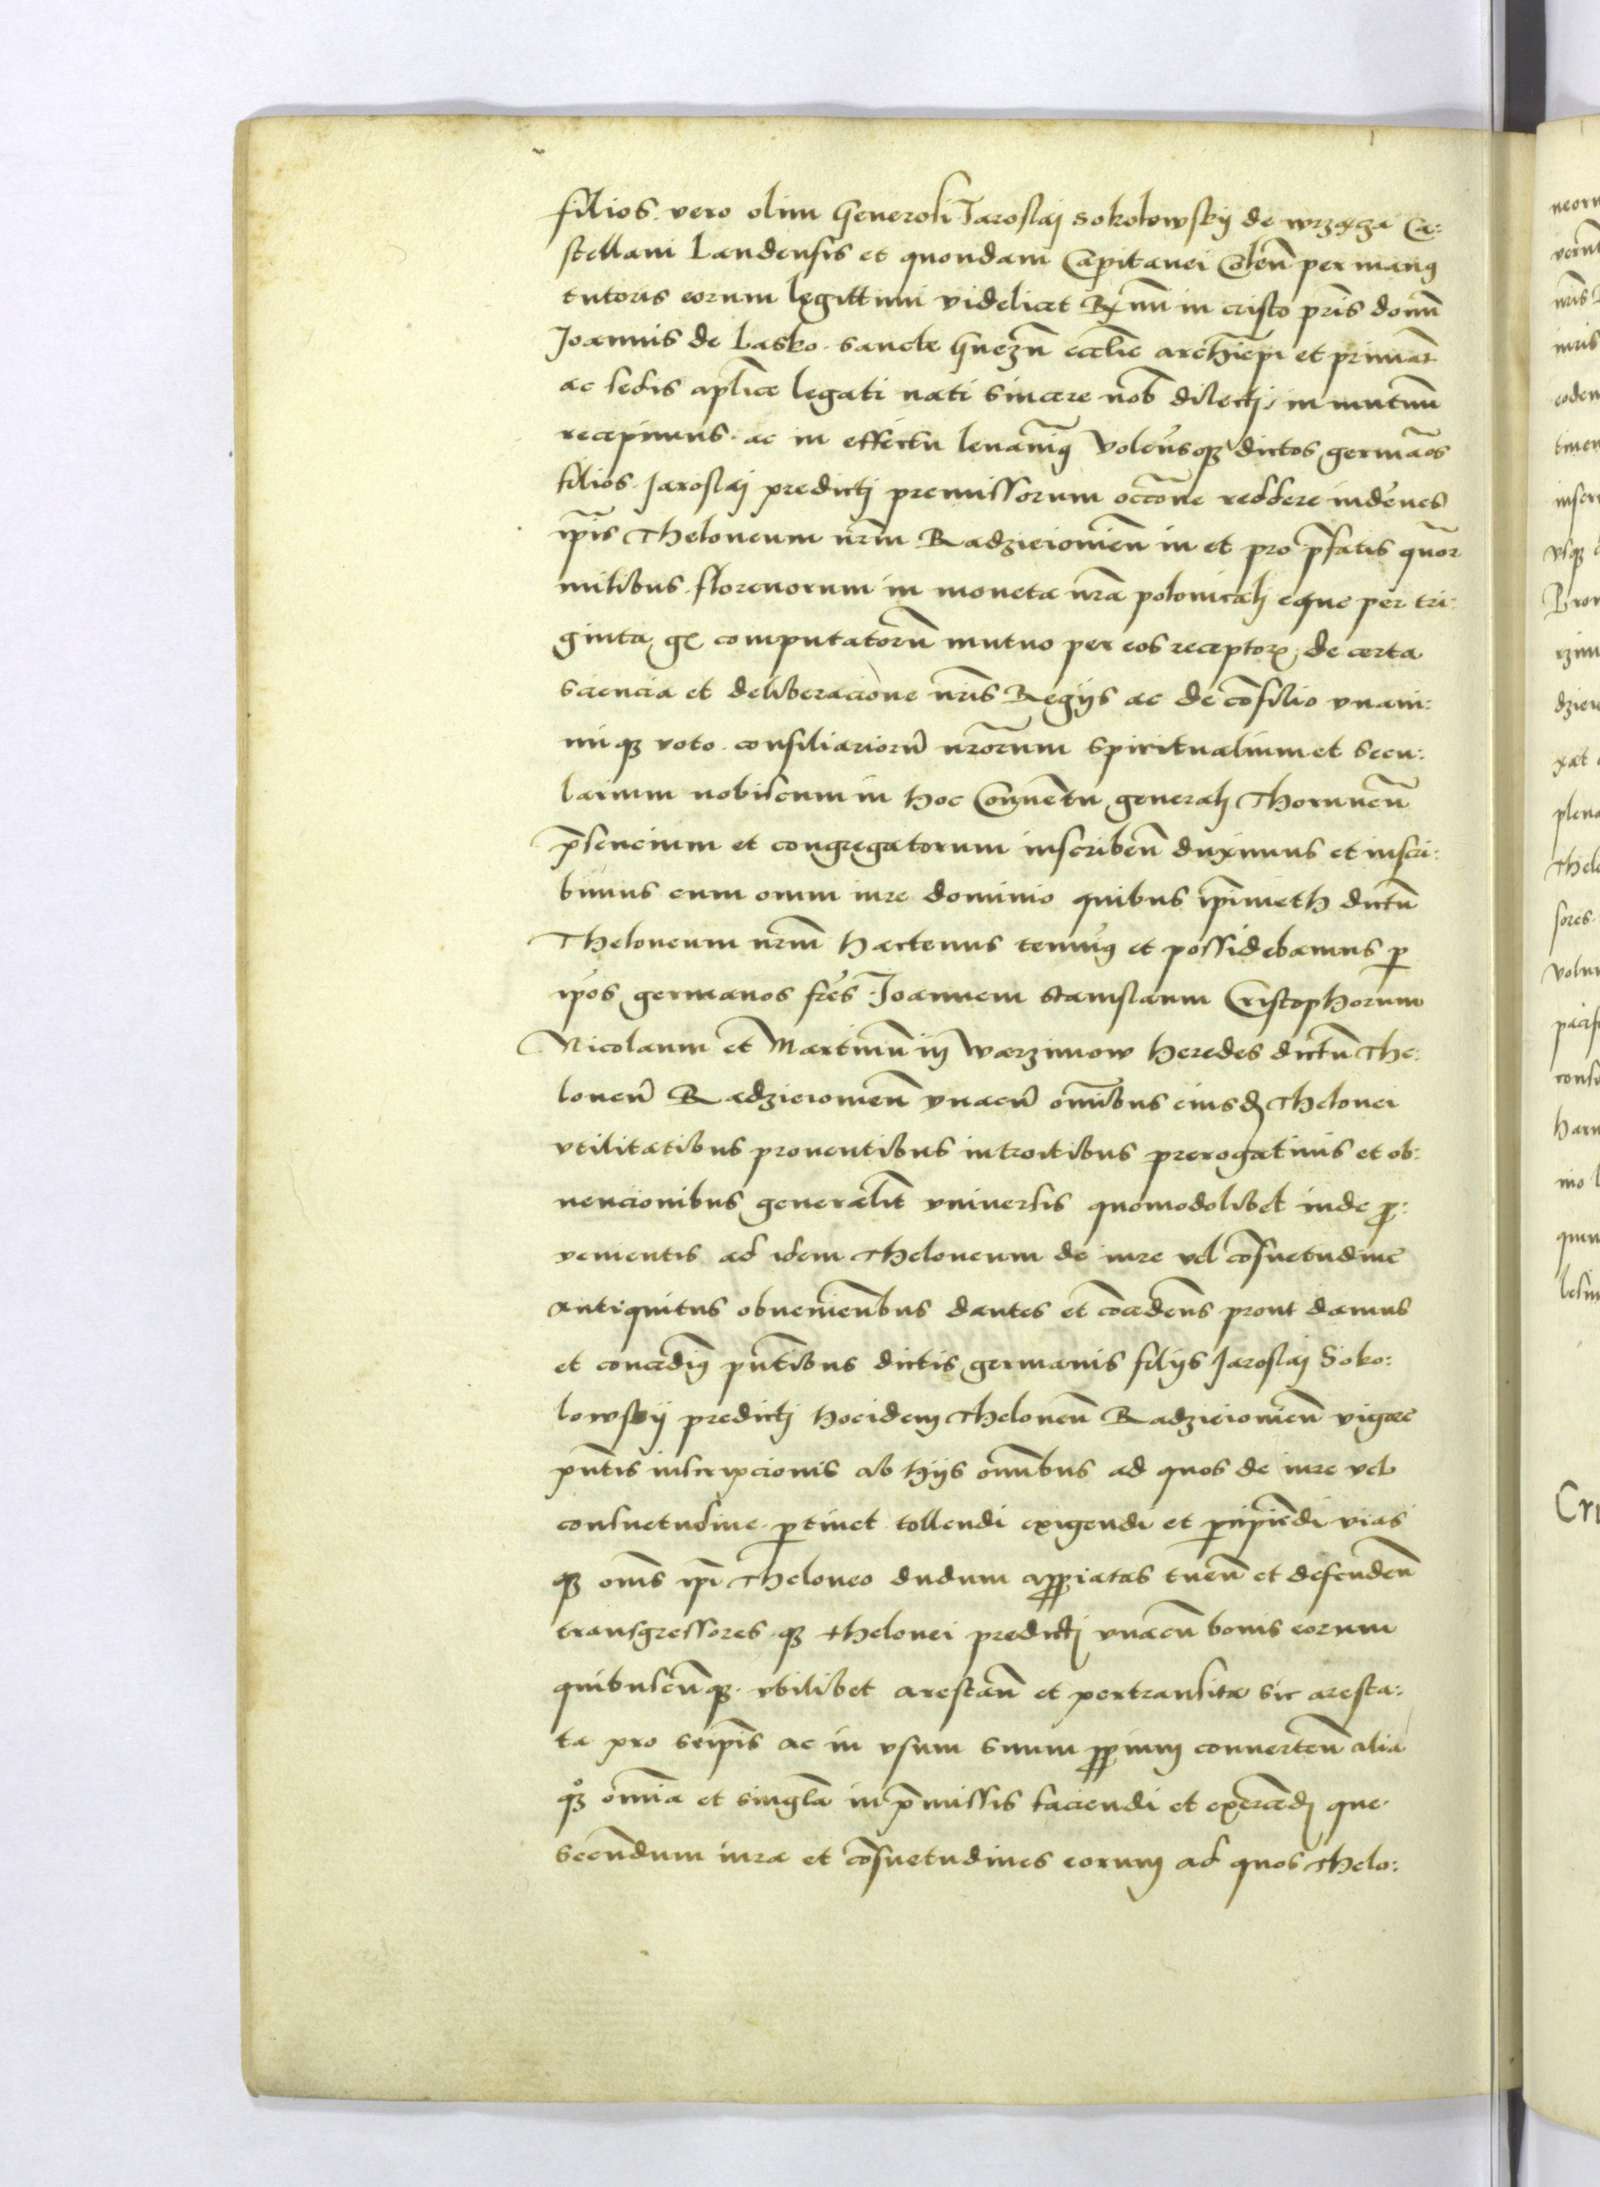 filios vero olim Generosi Jaroslaj Sokolowskij de wrzącza Ca:
stellani Landensis et quondam Capitanei Colen̄ per manꝫ
tutoris eorum legittimi videlicet Rx̄mi in cristo pr̄is domn̄
Joannis de Lasko sancte Gnezn̄ ecclīe archīepi et primat̄
ac sedis aplīce legati nati sincere nob̄ dilectj in mutuū
recepimus ac in effectu leuauimꝫ Volen̄sqꝫ dictos germāos
filios Jaroslaj predictj premissorum occōne reddere indēnes
ip̄is Theloneum nr̄m Radzieiowien̄ in et pro p̄fatis quōr
milibus florenorum in moneta nrā polonicalj eque per tri:
ginta gꝫ computatorū mutuo per eos receptorꝝ de certa
sciencia et deliberacione nr̄is Regijs ac de cōsilio vnani:
mi qꝫ voto consiliariorū nrōrum spiritualium et secu:
larium nobiscum in hoc Conuētu generalj Thorunen̄
p̄sencium et congregatorum inscriben̄ duximus et inscri:
bimus cum omni iure dominio quibus ip̄imeth dictū
Theloneum nr̄m hactenus tenuimꝫ et possidebamus ꝑ
ip̄os germanos fr̄es Joannem Stanislaum Cristophorum
Nicolaum et Martinū in Warzimow heredes dictū The:
loneū Radzieiowien̄ vnacū om̄ibus eiusd̄ Thelonei
vtilitatibus prouentibus introitibus prerogatiuis et ob:
uencionibus generalit̄ vniuersis quomodolibet inde ꝓ:
venientis ad idem Theloneum de iure vel cōsuetudine
antiquitus obuenientibus dantes et cōceden̄s prout damus
et concedimꝫ pn̄tibus dictis germanis filijs Jaroslaj Soko:
lowskij predictj hocidem Theloneū Radzieiowien̄ vigore
pn̄tis inscripcionis ab hijs om̄ibus ad quos de iure vel
consuetudine ꝑtinet tollendi exigendi et ꝑcipiēdi vias
qꝫ om̄s ip̄i Theloneo dudum apꝓpiatas tuen̄ et defenden̄
transgressores qꝫ thelonei predictj vnacū bonis eorum
quibuscūqꝫ vbilibet arestan̄ et pertransita sic aresta:
ta pro seip̄is ac in vsum suum ꝓpium conuerten̄ alia
qꝫ om̄ia et singla in p̄missis faciendi et exercēdj que
secūdum iura et cōsuetudines eorum ad quos Thelo: